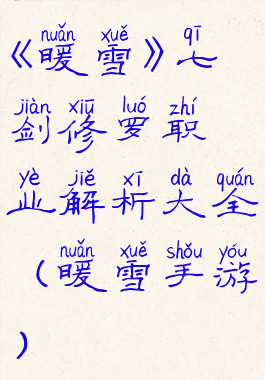 nuǎn xuě qī
《暖雪》七
jiàn xiū luó zhí
剑修罗职
yè jiě xī dà quán
业解析大全
nuǎn xuě shǒu yóu
（暖雪手游
）